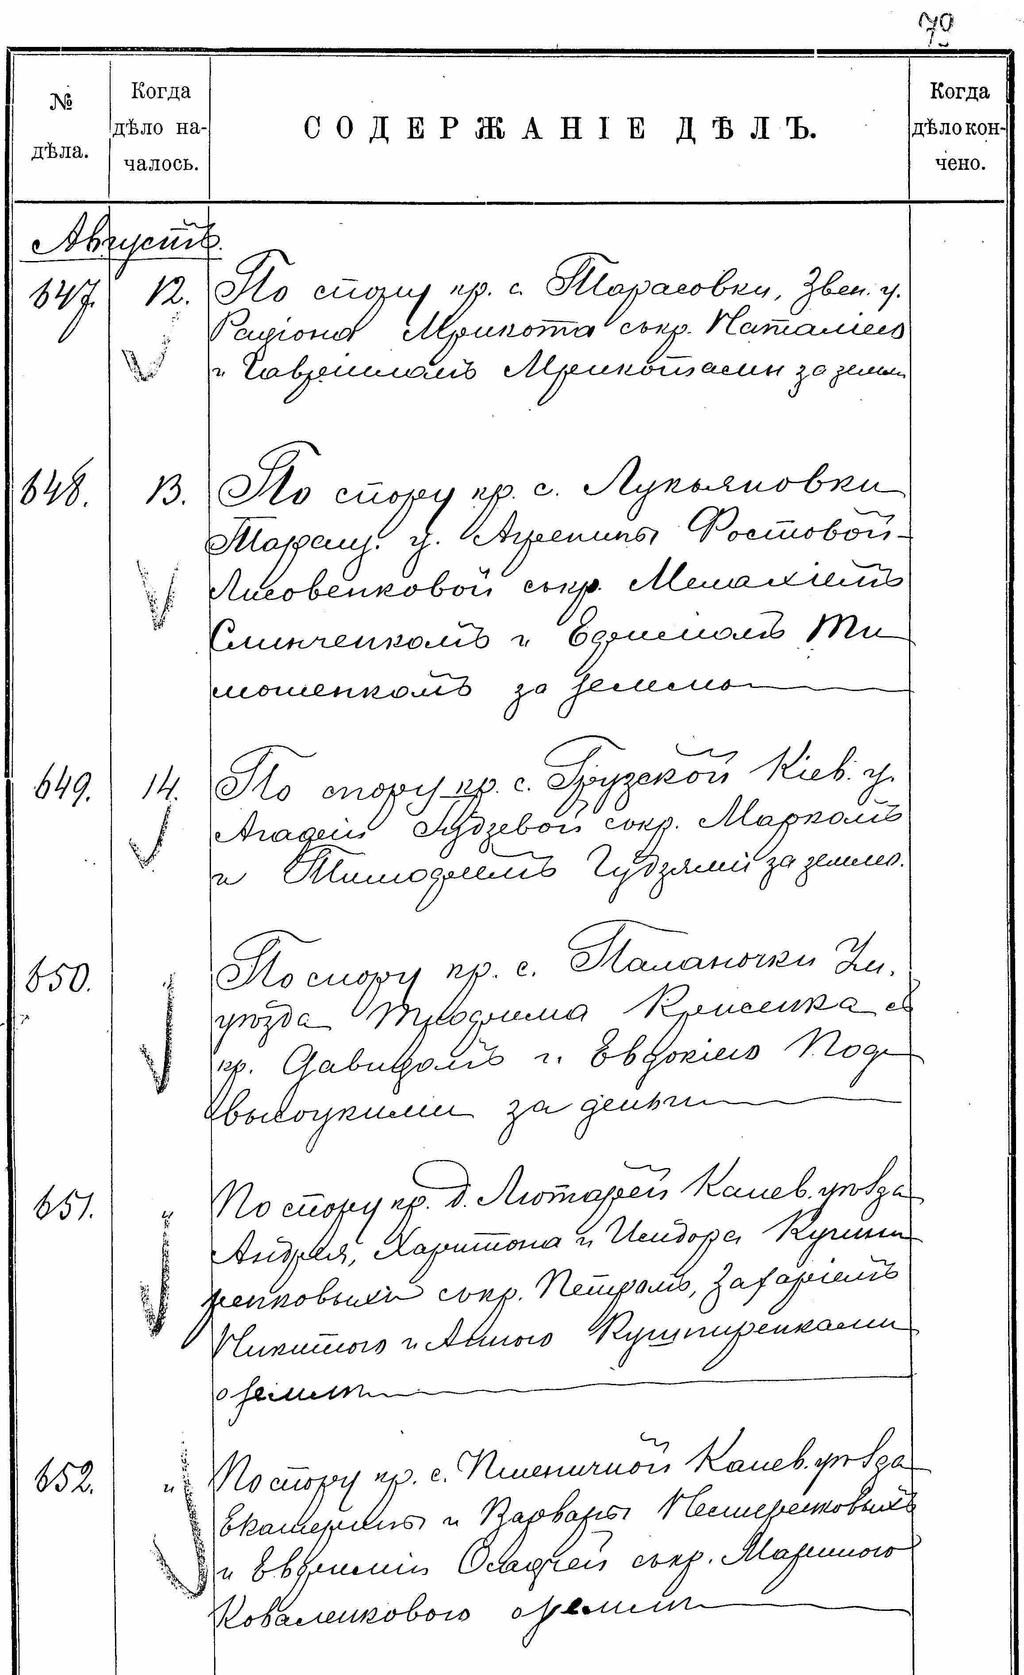 70
№ дѣла.
Когда дѣло началось.
СОДЕРЖАНІЕ ДѢЛЪ.
Когда дѣло кончено.
Августъ.
647. 12. По спору кр. с. Тарасовки, Звен. у.
Радіона Мрикота съ кр. Наталіею
и Гавріиломъ Мрикотами за землю
648. 13. По спору кр. с. Лукьяновки
Таращ. у. Агрепины Ростовой-
Лисовенковой съ кр. Малахіемъ
Слинченкомъ и Ефимомъ Ти
мошенкомъ за землю
649. 14. По спору кр. с. Грузской Кіев. у.
Агафіи Гудзевой съ кр. Маркомъ
и Тимофеемъ Гудзями за землю.
650. По спору кр. с. Паланочки Ум.
уѣзда Трофима съ
кр. Давидомъ и Евдокіею Под
высоцкими за деньги
651. " По спору кр. д. Лютарей Канев. уѣзда
Андрея, Харитона и Исидора Кучми
ренковыхъ съ кр. Петромъ, Захаріемъ
Никитою и Анною
о землѣ
652. " По спору кр. с. Пшеничной Канев. уѣзда
Екатерины и Варвары
и Евфиміи Осадчей съ кр. Мариною
Коваленковою о землѣ